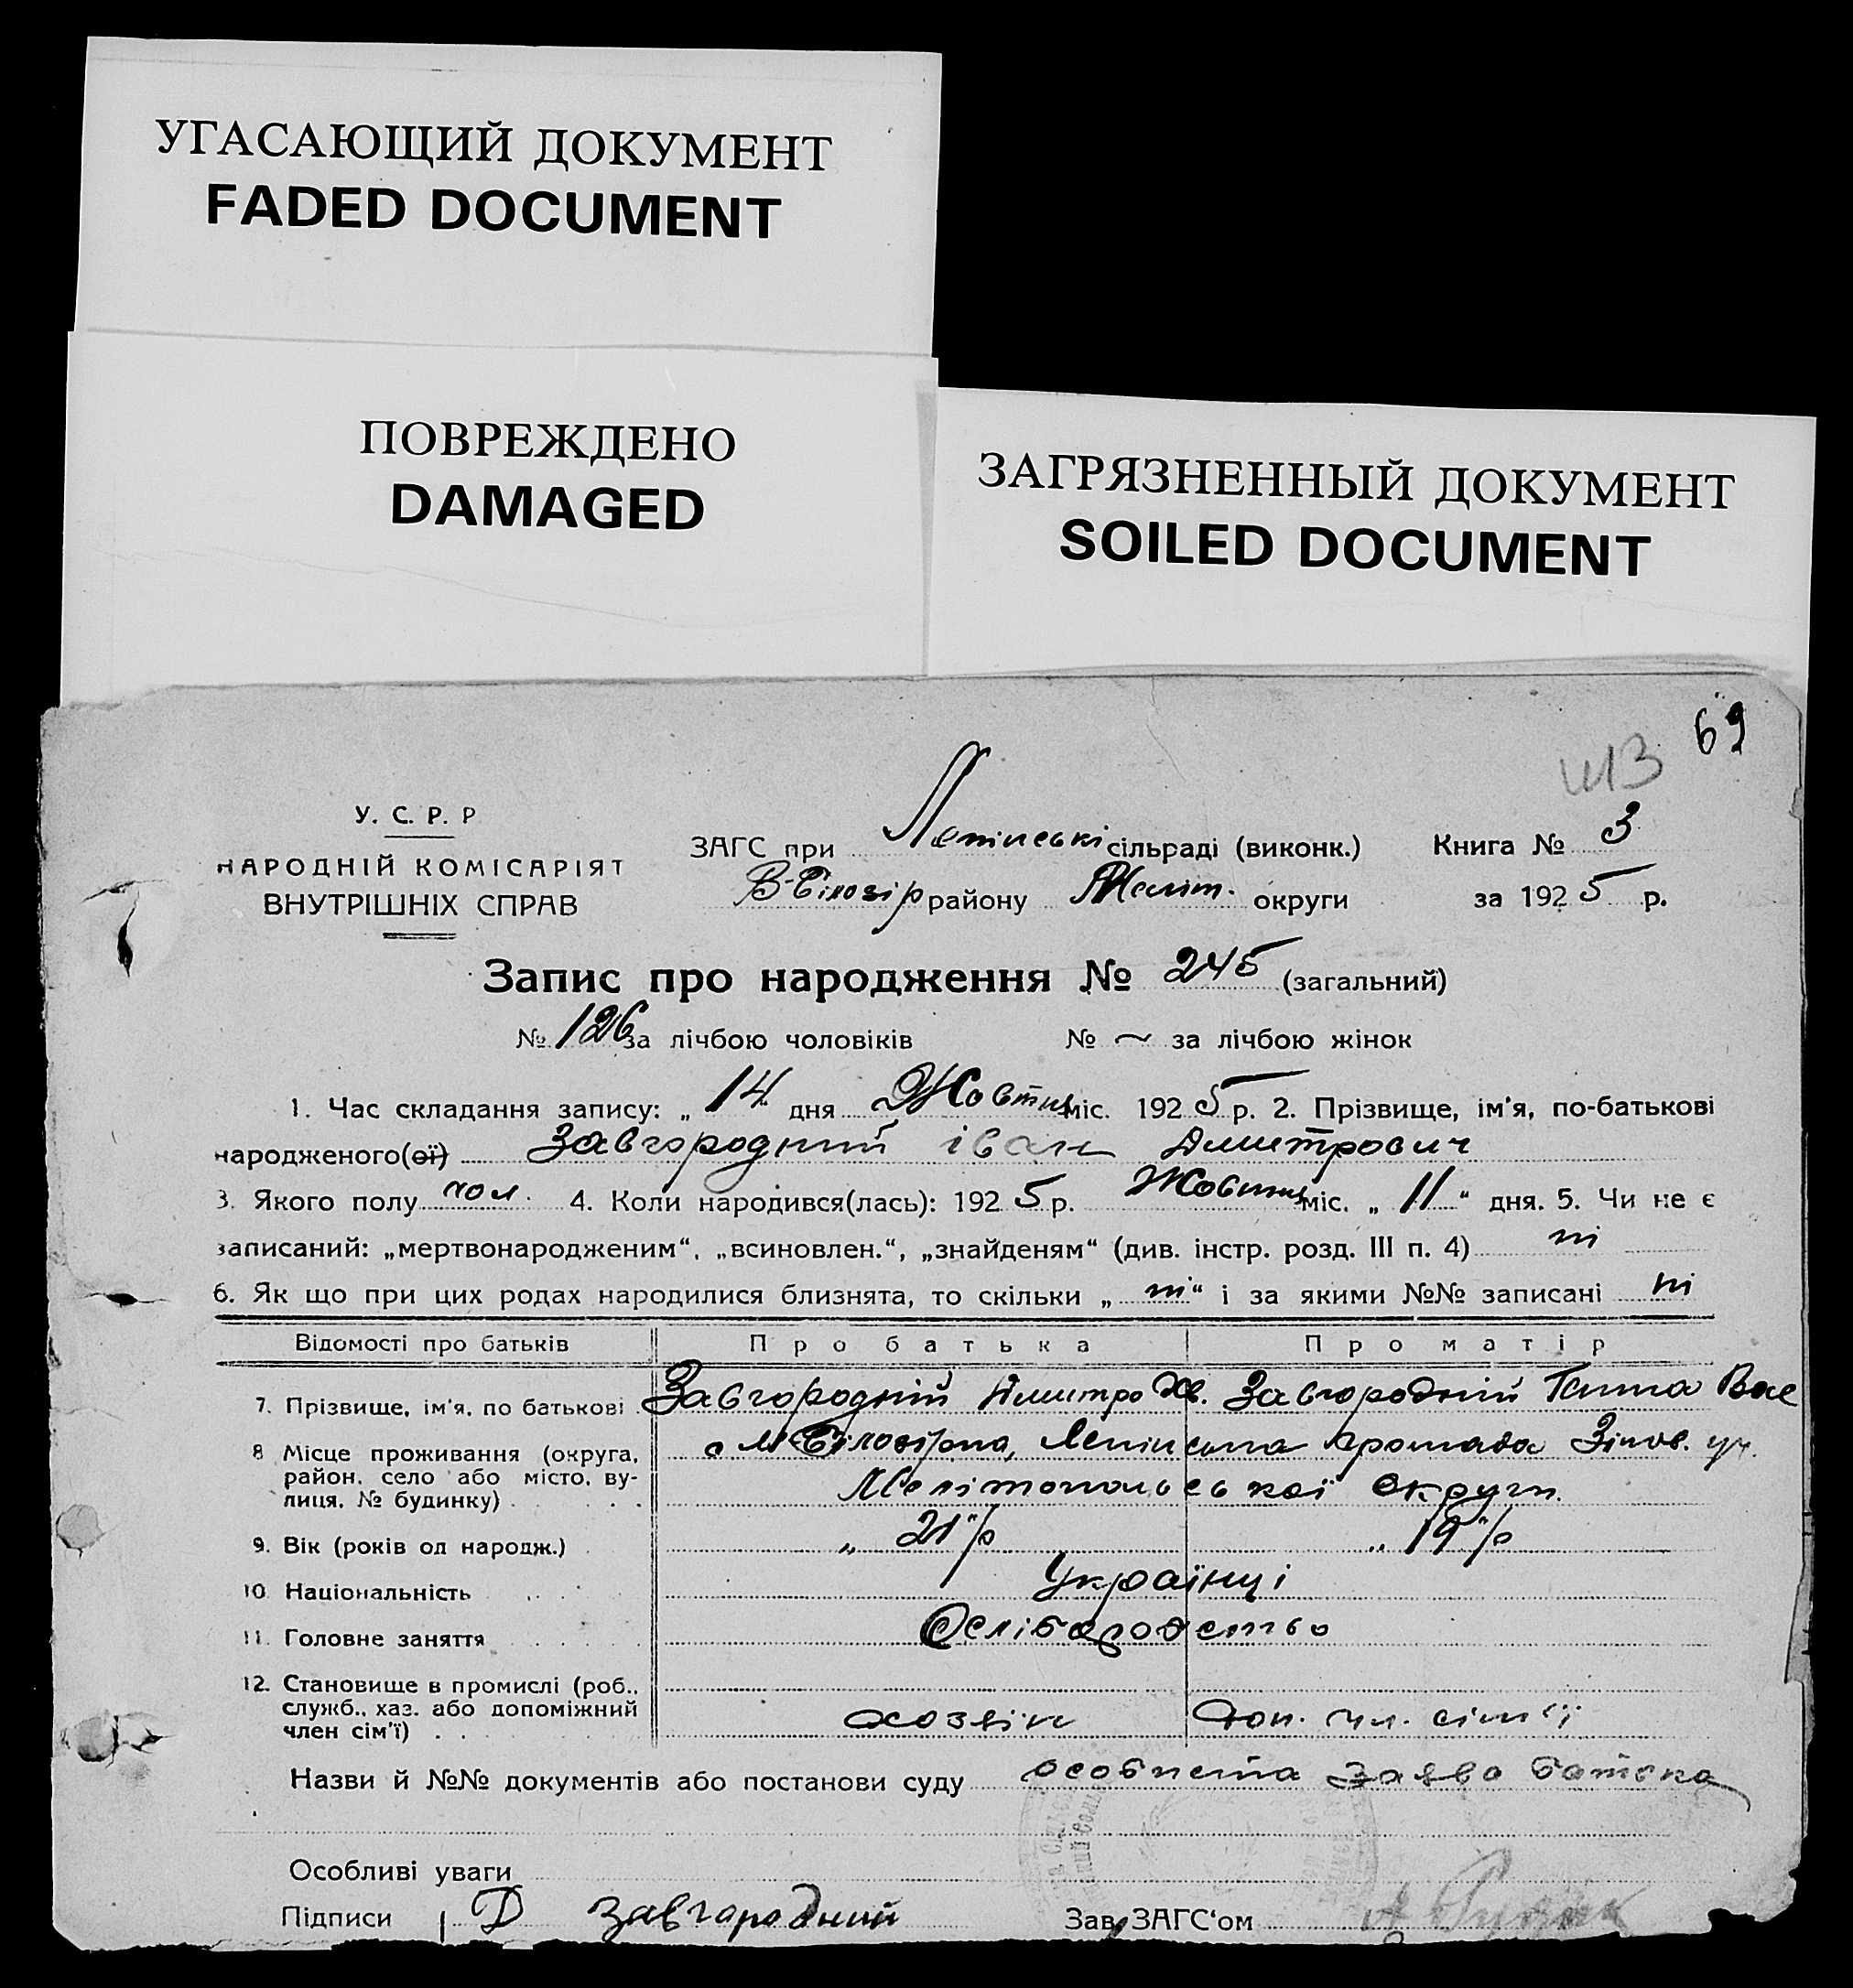 УГАСАЮЩИЙ ДОКУМЕНТ
FADED DOCUMENT
ПОВРЕЖДЕНО
DAMAGED
ЗАГРЯЗНЕННЫЙ ДОКУМЕНТ
SOILED DOCUMENT
69
У. С. Р. Р
НАРОДНІЙ КОМІСАРІЯТ
ВНУТРІШНІХ СПРАВ
ЗАГС при Ленінські сільраді (виконк.) Книга № 3
В-Білозір району Меліт. округи за 1925 р.
Запис про народження № 245 (загальний)
№ 126 за лічбою чоловіків № ~ за лічбою жінок
1. Час складання запису: „ 14 дня Жовтня міс. 1925 р. 2. Прізвище, ім'я, по-батькові
народженого(ої) Завгородний іван Дмитрович
3. Якого полу чол. 4. Коли народився(лась): 1925 р. Жовтня міс. „ 11 “ дня. 5. Чи не є
записаний: „мертвонародженим“, „всиновлен.“, „знайденям“ (див. інстр. розд. III п. 4) ні
6. Як що при цих родах народилися близнята, то скільки „ ні “ і за якими №№ записані ні
Відомості про батьків Про батька Про матір
7. Прізвище, ім'я, по батькові Завгородній Дмитро Завгородній Ганна Вас
8 Місце проживання (округа, район, село або місто, вулиця, № будинку) Білозірка, Ленінська громада
Мелітопольської Округи.
9. Вік (років од народж.) „ 21 "/р „ 19 "/р
10. Національність Українці
11. Головне заняття Хліборобство
12. Становище в промислі (роб.,
служб., хаз. або допоміжний
член сім'ї) хозяін доп. чл. сім'ї
Назви й №№ документів або постанови суду особиста заява батька
Особливі уваги
Підписи Д Завгородний Зав. ЗАГС'ом